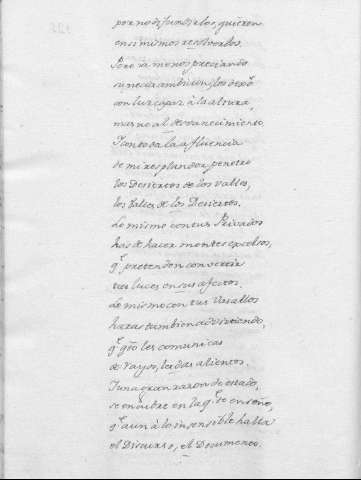 por no difundirlos, quieren
en si mismos resolverlos.
Pero à menos preciando
su necia ambicion, los dexo
con luz capaz à la altura,
mas no al desvanecimiento.
Y con toda la afluencia
de mi resplandor, penetro
los Desiertos de los valles,
los Valles de los Desiertos.
Lo mismo con tus Privados
has de hacer montes excelsos,
q.e pretenden convertir
tus luces en sus afectos.
Lo mismo con tus Vasallos
haras tambien advirtiendo,
q.e les comunicas
de rayos, los das alientos.
Y una gran razon de estado,
se encubre en la q.e te enseño,
q.e aun à lo insensible halla
el Discurso, el Documento.